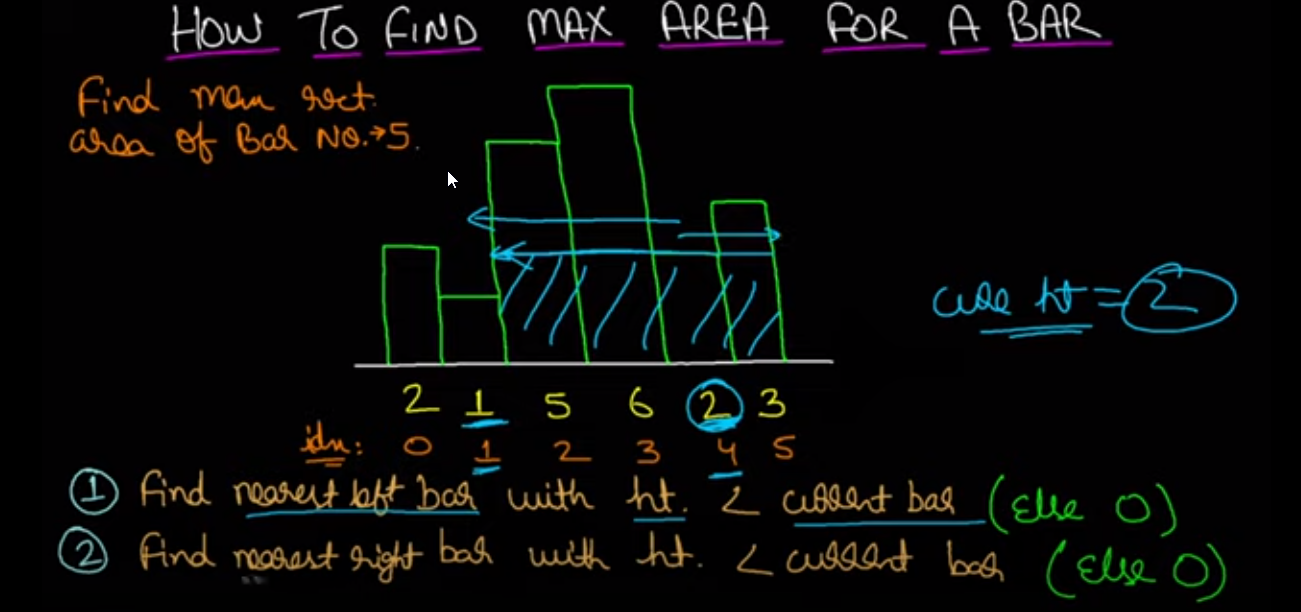 HOW TO FIND MAX AREA FOR A BAR
Find max rect.
area of Bar No.→5.
curr ht = 2
2 1 5 6 2 3
idx: 0 1 2 3 4 5
① find nearest left bar with ht. < current bar (else 0)
② find nearest right bar with ht. < current bar (else 0)